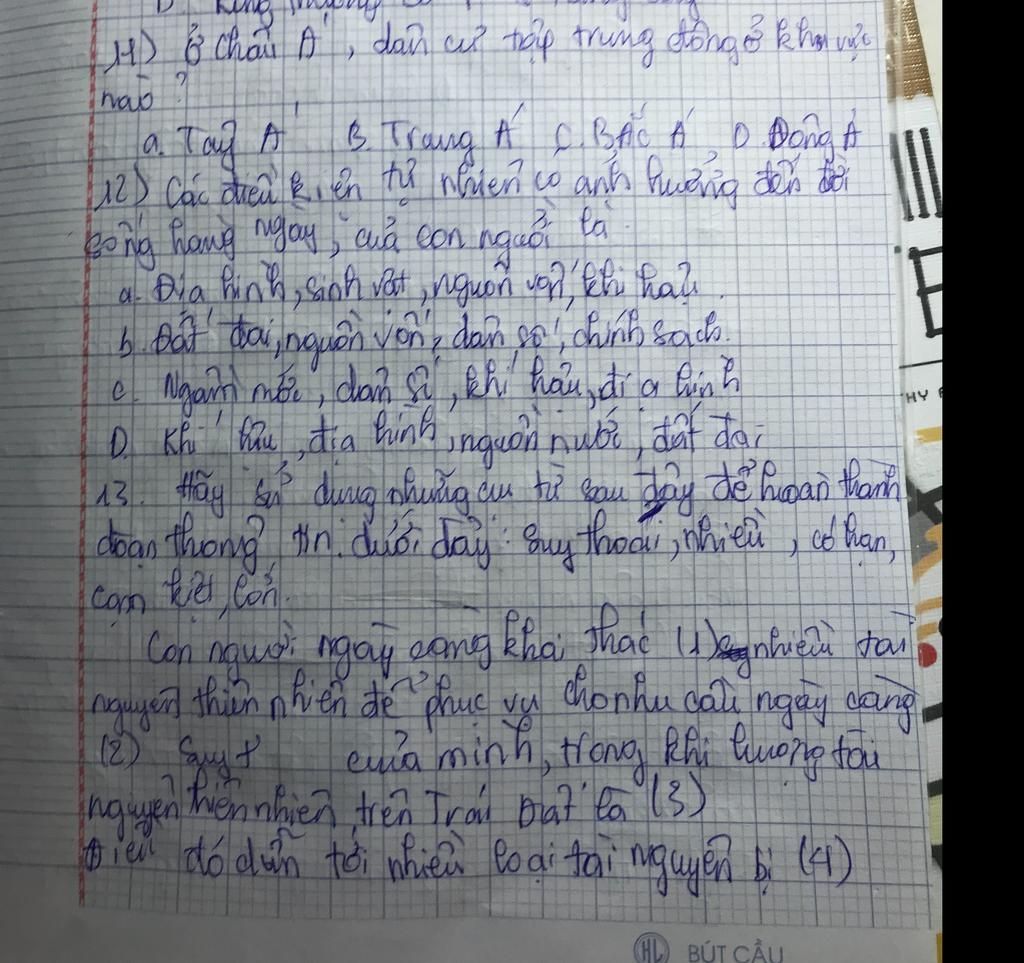 11) Ở Châu Á, dân cư tập trung đông ở khu vực
nào?
a. Tây Á B. Trung Á C. BẮC Á D. Đông Á
12) Các điều kiện tự nhiên có ảnh hưởng đến đời
sống hàng ngày, của con người là
a. Địa hình, sinh vật, nguồn vốn, khí hậu.
b. Đất đai, nguồn vốn, dân số, chính sách.
c. Ngầm nước, dân số, khí hậu, địa hình
D. Khí hậu, địa hình, nguồn nước, đất đai
13. Hãy sử dụng những cụm từ sau đây để hoàn thành
đoạn thông tin dưới đây: Suy thoái, nhiều, có hạn,
cạn kiệt, lớn.
Con người ngày càng khai thác (1) nhiều tài
nguyên thiên nhiên để phục vụ cho nhu cầu ngày càng
(2) Suy t của mình, trong khi lượng tài
nguyên thiên nhiên trên Trái Đất là (3)
Điều đó dẫn tới nhiều loại tài nguyên bị (4)
HL BÚT CẦU
HY